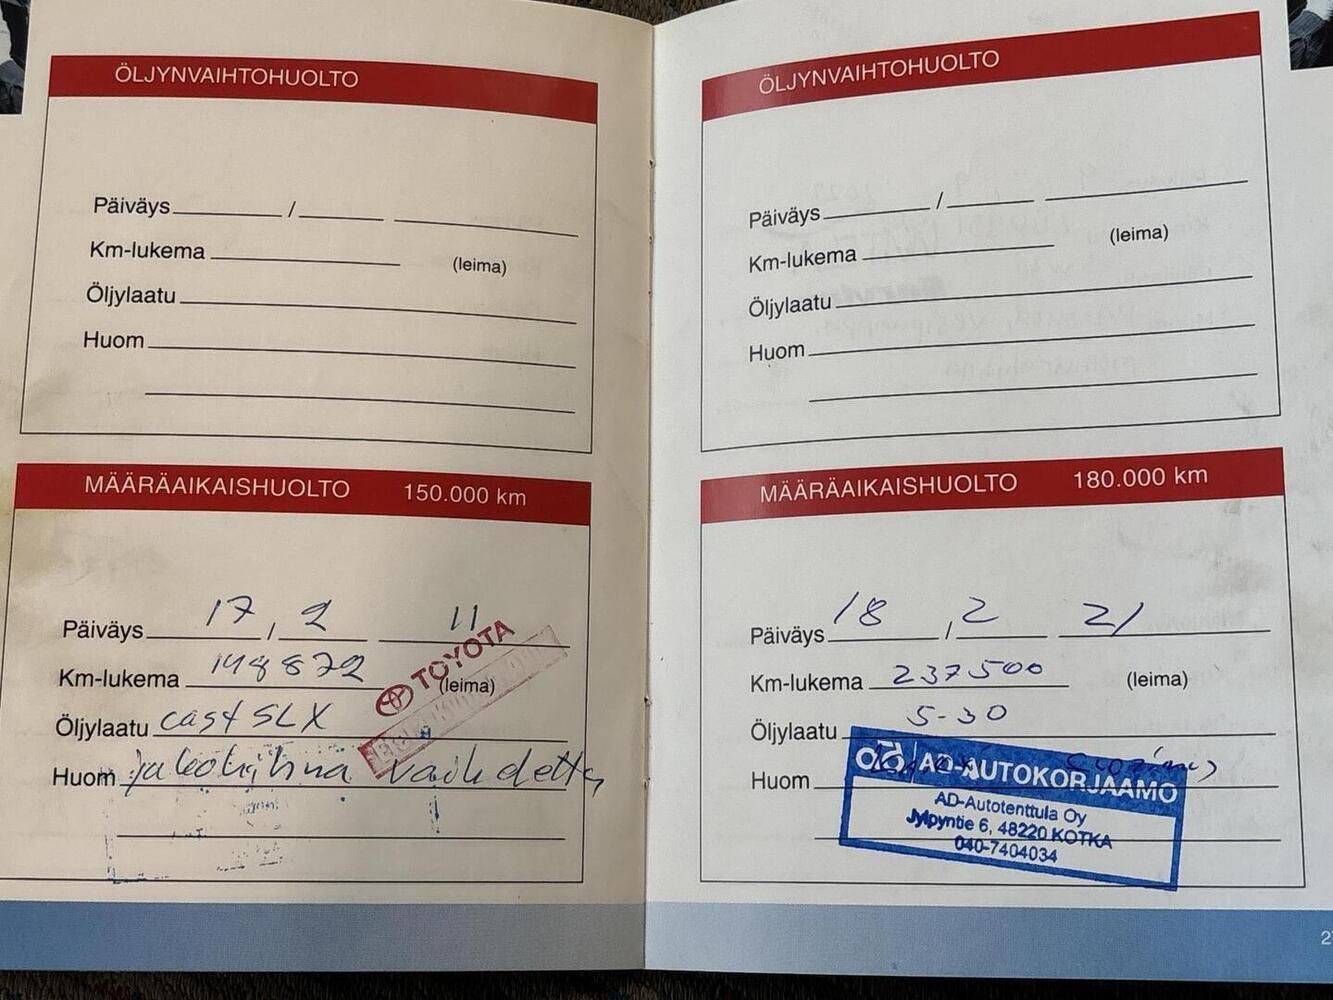 ÖLJYNVAIHTOHUOLTO
Päiväys / 
Km-lukema (leima)
Öljylaatu
Huom
MÄÄRÄAIKAISHUOLTO 150.000 km
Päiväys 17 , 2 11
Km-lukema 148872 (leima)
TOYOTA
Öljylaatu cast SLX
Huom jakohihna vaihdettu
ÖLJYNVAIHTOHUOLTO
Päiväys /
Km-lukema (leima)
Öljylaatu
Huom
MÄÄRÄAIKAISHUOLTO 180.000 km
Päiväys 18 , 2 21
Km-lukema 237500 (leima)
Öljylaatu 5-30
Huom
AD-AUTOKORJAAMO
AD-Autotenttula Oy
Jylpyntie 6, 48220 KOTKA
040-7404034